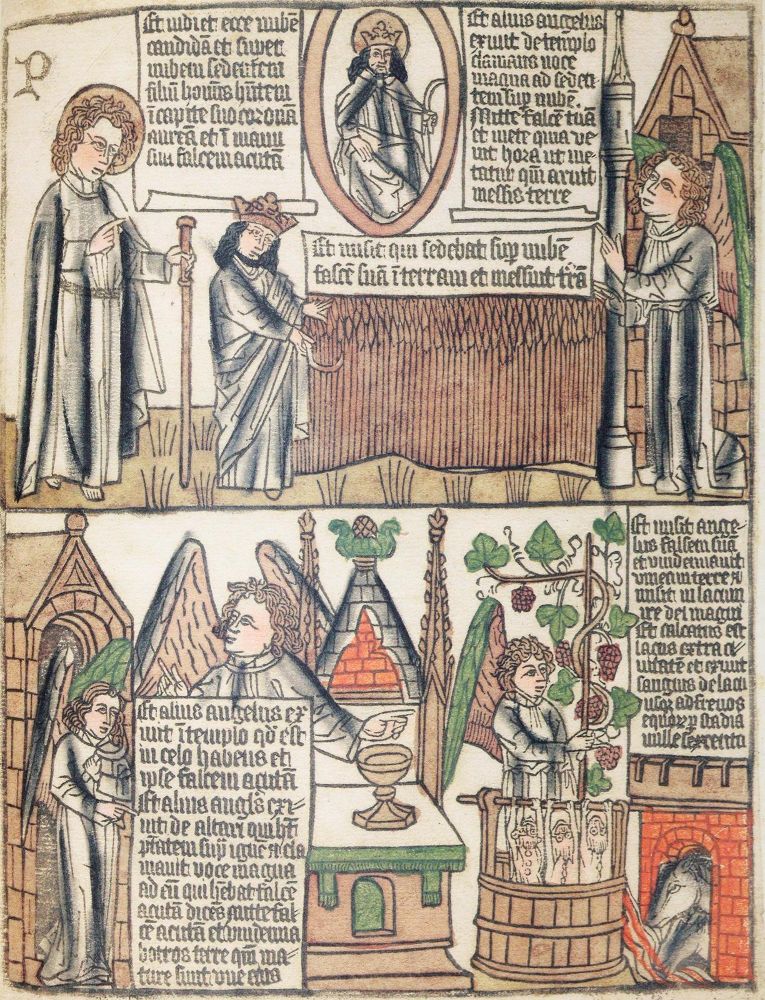 P
Et vidi et ecce nubē
candidā et super
nubem sedentem
filiū hominis hn̄tem
ī capite suo coronā
aureā et ī manu
sua falcem acutā
Et alius angelus
exiuit de templo
clamans voce
magna ad sedē
tem sup nubē
Mitte falcē tuā
et mete quia ve
nit hora ut me
tatur qm̄ aruit
messis terre
Et misit qui sedebat sup nubē
falcē suā ī terram et messuit trā
Et misit ange
lus falcem suā
et vindemiauit
vineam terre et
misit in lacum
ire dei magnū
Et calcatus est
lacus extra ci
uitatē et exiuit
sanguis de lacu
usq ad frenos
equorū p stadia
mille sexcenta
Et alius angelus ex
iuit ī templo qd est
in celo habens et
ipse falcem acutā
Et alius angls exi
uit de altari qui ht
ptatem sup ignē et cla
mauit voce magna
ad eū qui hēbat falcē
acutā dicēs mitte fal
cē acutā et vindemia
botros terre qm̄ ma
ture sunt vue eius